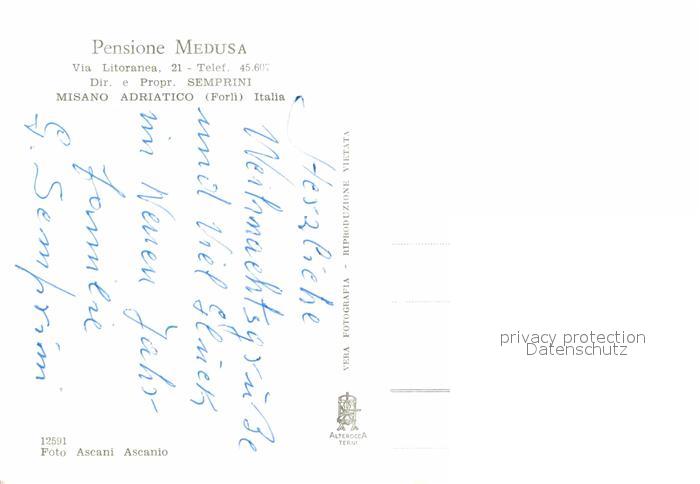 Pensione MEDUSA
Via Litoranea, 21 - Telef. 45.607
Dir. e Propr. SEMPRINI
MISANO ADRIATICO (Forlì) Italia
Herzliche
Weihnachtsgrüße
und viel Glück
im Neuen Jahr
Familie
G. Semprini
VERA FOTOGRAFIA - RIPRODUZIONE VIETATA
ALTEROCCA
TERNI
12591
Foto Ascani Ascanio
privacy protection
Datenschutz